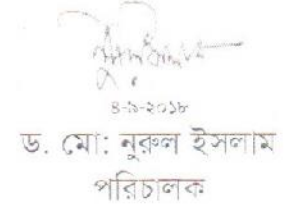 ৪-৯-২০১৮
ড. মো: নুরুল ইসলাম
পরিচালক